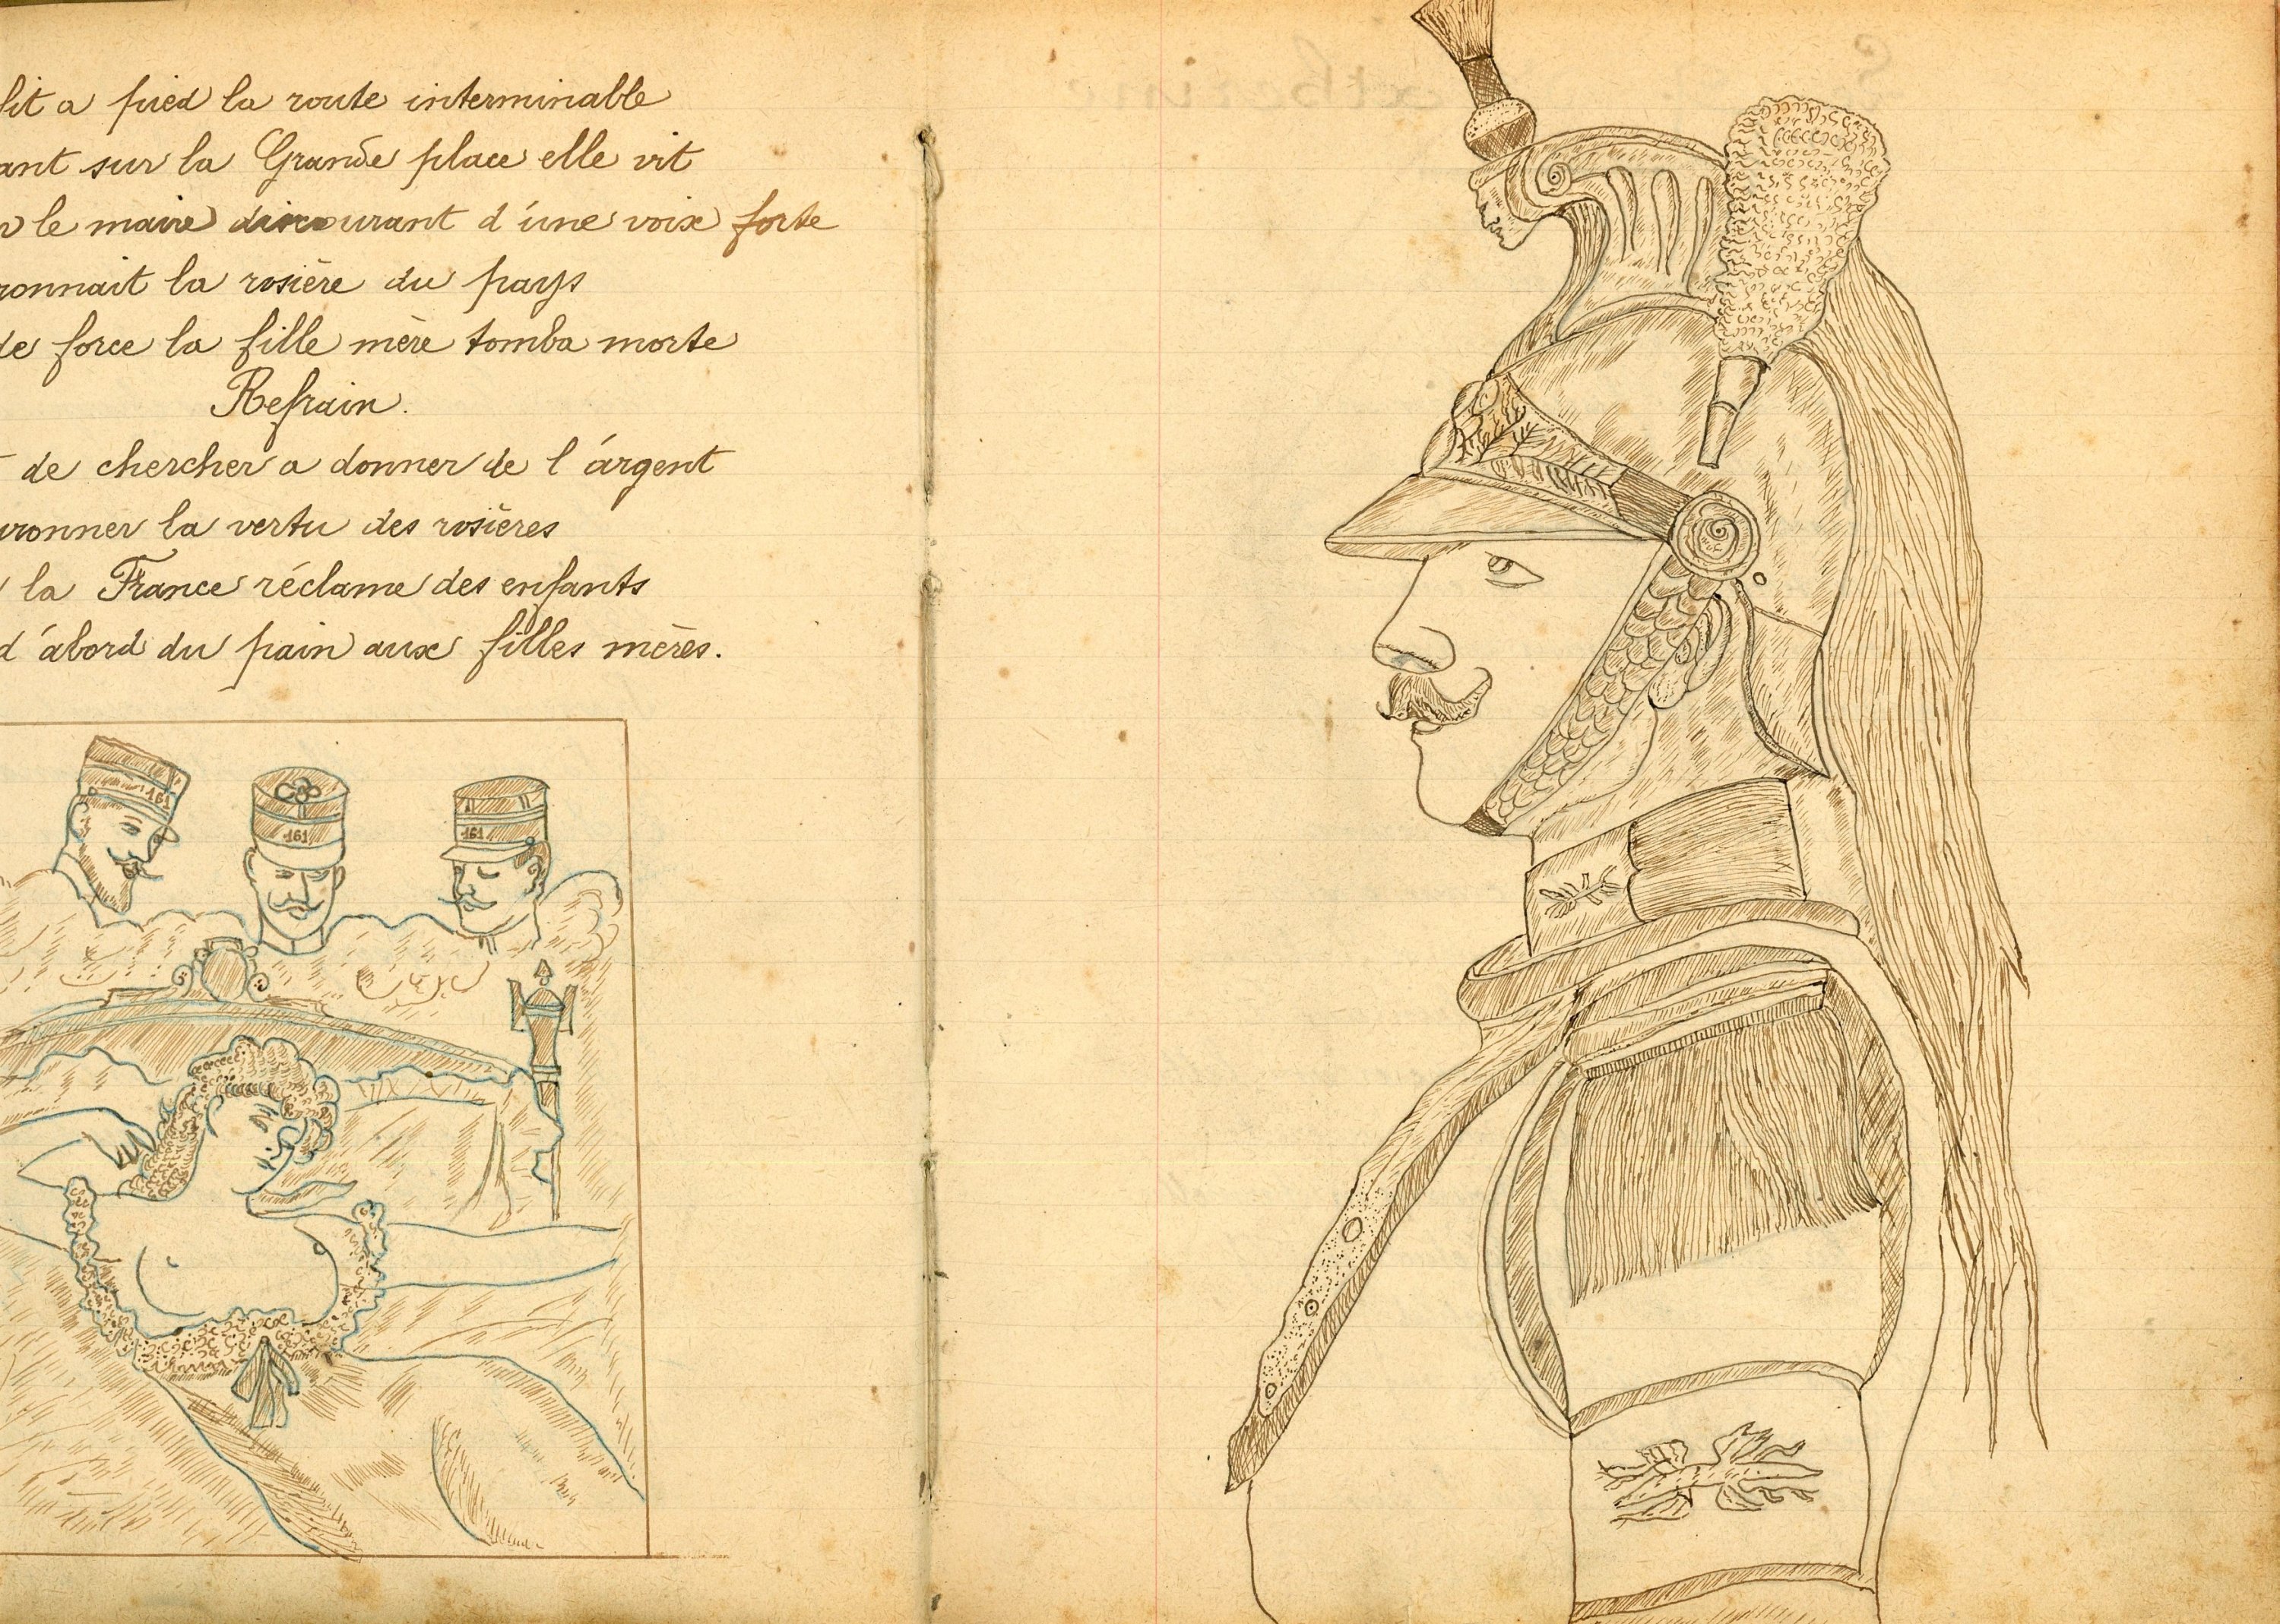 fit a pied la route interminable
ant sur la Grande place elle vit
le maire discourant d'une voix forte
ronnait la rosière du pays
de force la fille mère tomba morte
Refrain.
de chercher a donner de l'argent
uronner la vertu des rosières
la France réclame des enfants
d'abord du pain aux filles mères.
161
161
161